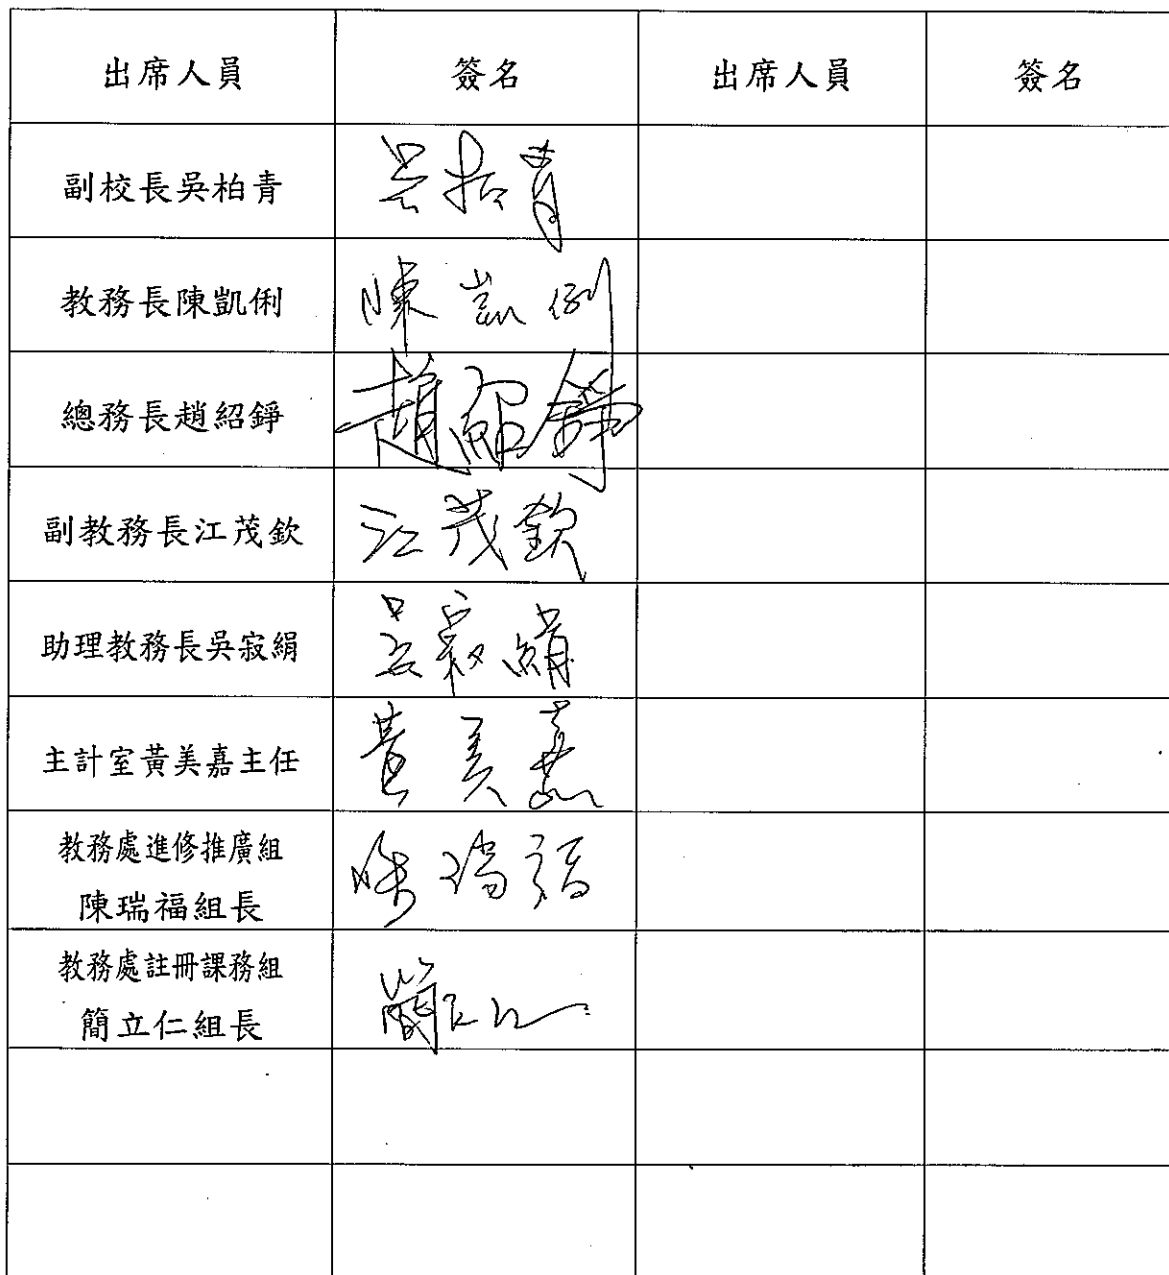 出席人員 簽名 出席人員 簽名
副校長吳柏青 吳柏青
教務長陳凱俐 陳凱俐
總務長趙紹錚 趙紹錚
副教務長江茂欽 江茂欽
助理教務長吳寂絹 吳寂絹
主計室黃美嘉主任 黃美嘉
教務處進修推廣組
陳瑞福組長 陳瑞福
教務處註冊課務組
簡立仁組長 簡立仁